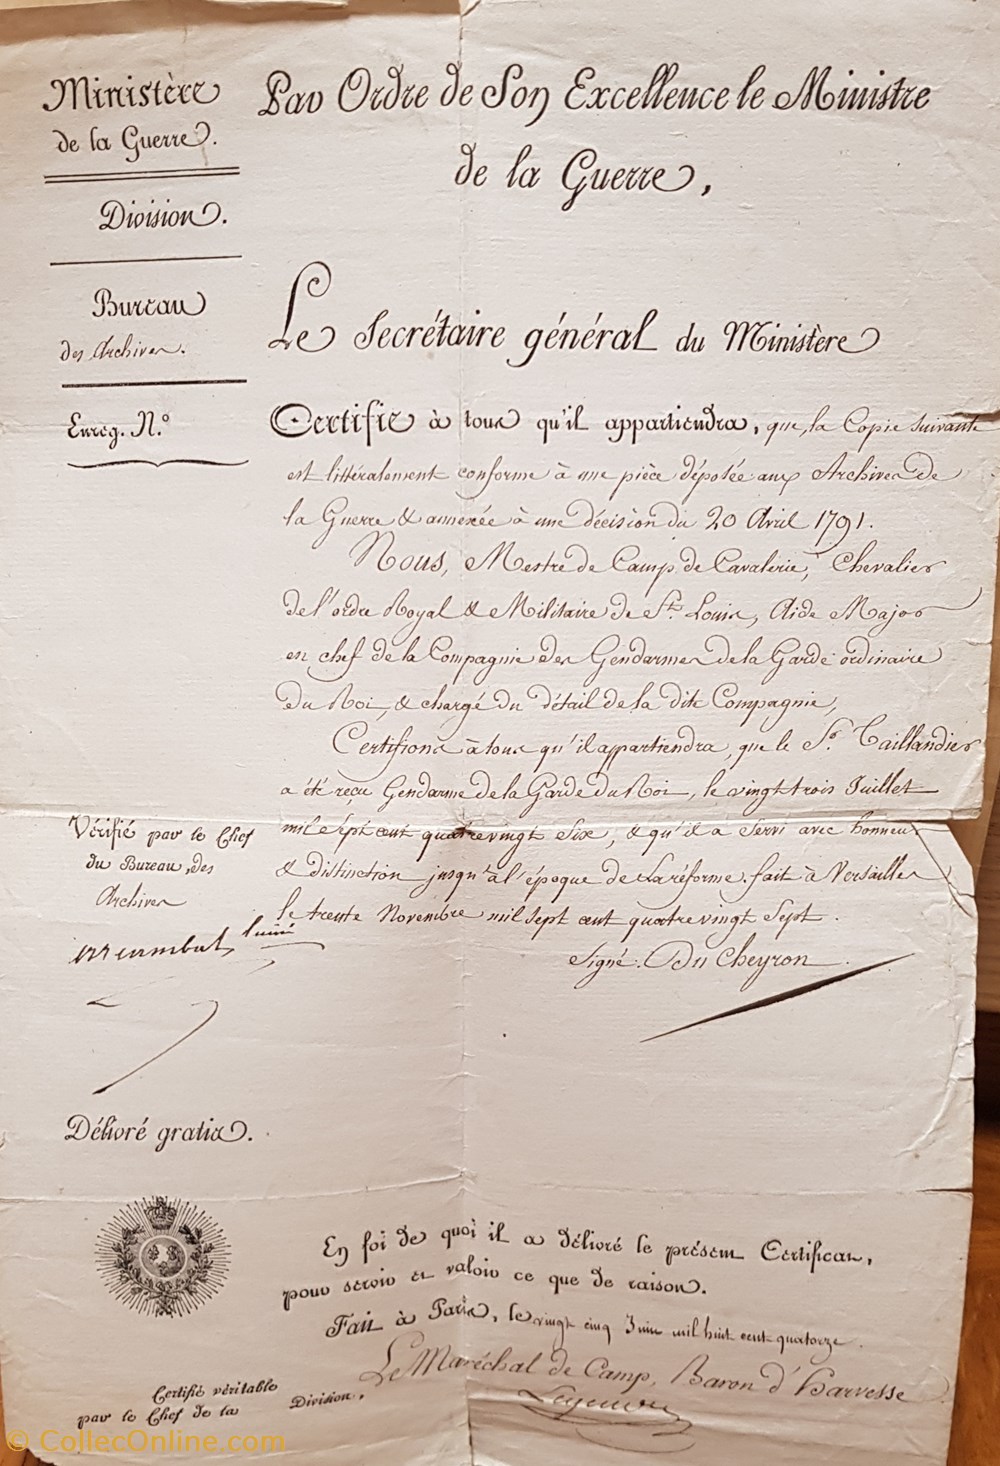 Ministère
de la Guerre.
Division.
Bureau
des Archives.
Enreg. N.°
Par Ordre de Son Excellence le Ministre
de la Guerre,
Le Secrétaire général du Ministère
Certifie à tous qu'il appartiendra, que la Copie suivante
est littéralement conforme à une pièce déposée aux Archives de
la Guerre & annexée à une décision du 20 Avril 1791.
Nous, Mestre de Camp de Cavalerie, Chevalier
de l'ordre Royal & Militaire de St. Louis, Aide Major
en chef de la Compagnie des Gendarmes de la Garde ordinaire
du Roi, & chargé du détail de la dite Compagnie,
Certifions à tous qu'il appartiendra, que le Sr. Taillandier
a été reçu Gendarme de la Garde du Roi, le vingt trois Juillet
mil sept cent quatrevingt Six, & qu'il a servi avec honneur
& distinction jusqu'à l'époque de la réforme. fait à Versailles
le trente Novembre mil sept cent quatrevingt Sept.
Signé. Du Cheyron
Vérifié par le Chef
du Bureau, des
Archives
Délivré gratis.
En foi de quoi il a délivré le présent Certificat,
pour servir et valoir ce que de raison.
Fait à Paris, le vingt cinq Juin mil huit cent quatorze.
Le Maréchal de Camp, Baron d'harvesse
Certifié véritable
par le Chef de la Division,
© CollecOnline.com